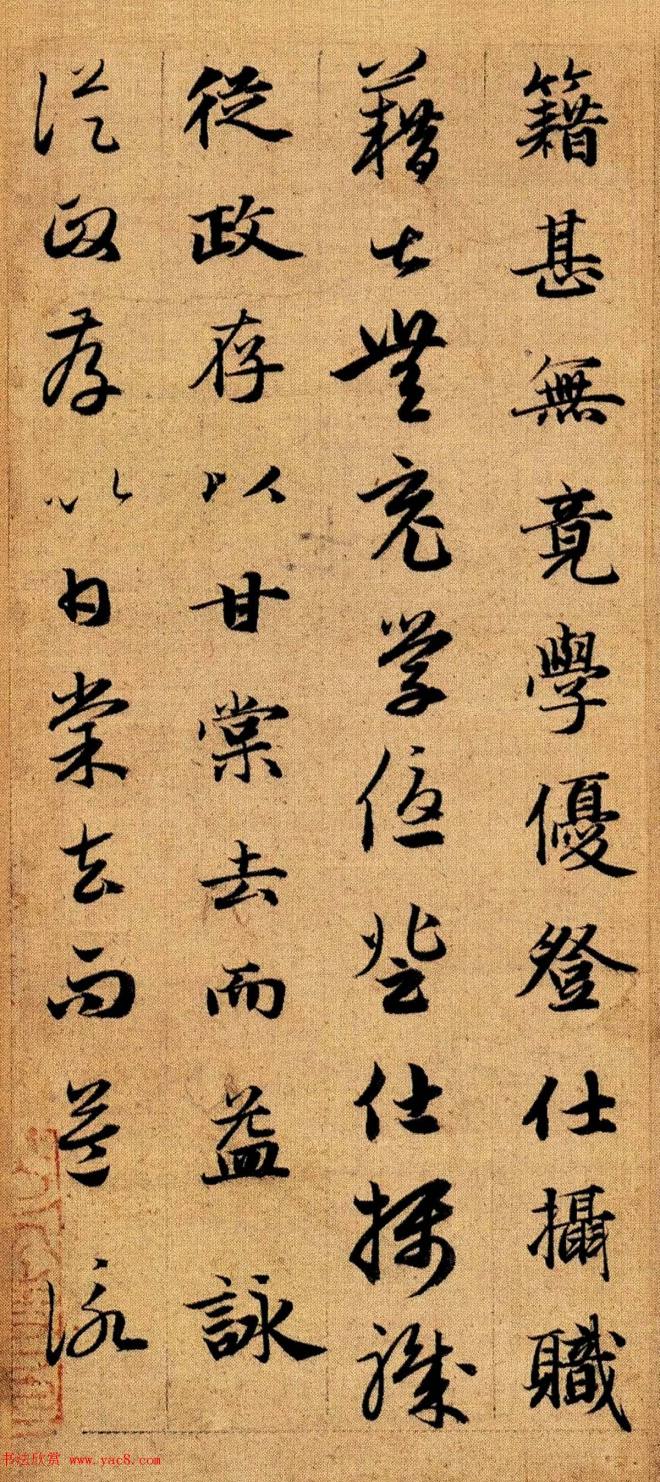 籍甚無竟學優登仕攝職
藉甚無竟學優登仕攝職
從政存以甘棠去而益詠
從政存以甘棠去而益詠
书法欣赏 www.yac8.com